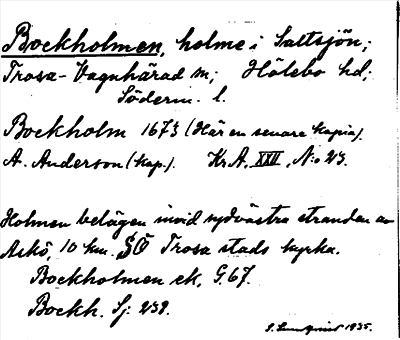 Bockholmen, holme i Saltsjön;
Trosa-Vagnhärad sn; Hölebo hd;
Söderm. l.
Bockholm 1673 (Här en senare kopia).
A. Anderson (kap.). Kr.A. XXII, N:o 23.
Holmen belägen invid sydvästra stranden av
Askö, 10 km. SÖ Trosa stads kyrka.
Bockholmen ek, G. 67.
Bockh. Sj. 239.
1935.